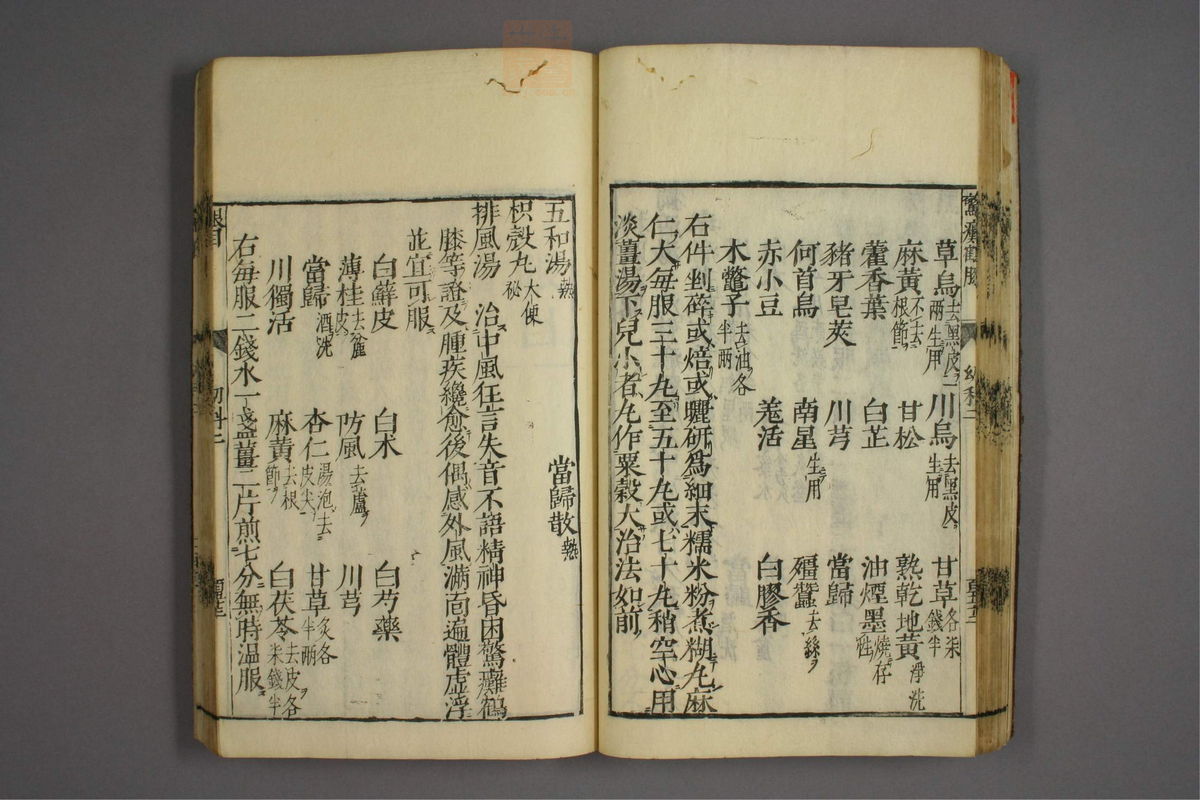 草烏去黑皮兩生用 川烏去黑皮生用 甘草各柒錢半
麻黃不去根節 甘松 熟乾地黃淨洗
藿香葉 白芷 油煙墨燒存性
豬牙皂莢 川芎 當歸
何首烏 南星生用 殭蠶去絲
赤小豆 羗活 白膠香
木鱉子去油各半兩
右件剉碎或焙或曬研爲細末糯米粉煮糊丸麻
仁大每服三十丸至五十丸或七十丸稍空心用
淡薑湯下兒小者丸作粟穀大治法如前
當歸散熱
五和湯熱
枳殼丸大便秘
排風湯 治中風狂言失音不語精神昏困驚癱鶴
膝等證及腫疾纔愈後偶感外風滿面遍體虛浮
並宜可服
白蘚皮 白朮 白芍藥
薄桂去麄皮 防風去蘆 川芎
當歸酒洗 杏仁湯泡去皮尖 甘草炙各半兩
川獨活 麻黃去根節 白茯苓去皮各柒錢半
右每服二錢水一盞薑二片煎七分無時溫服